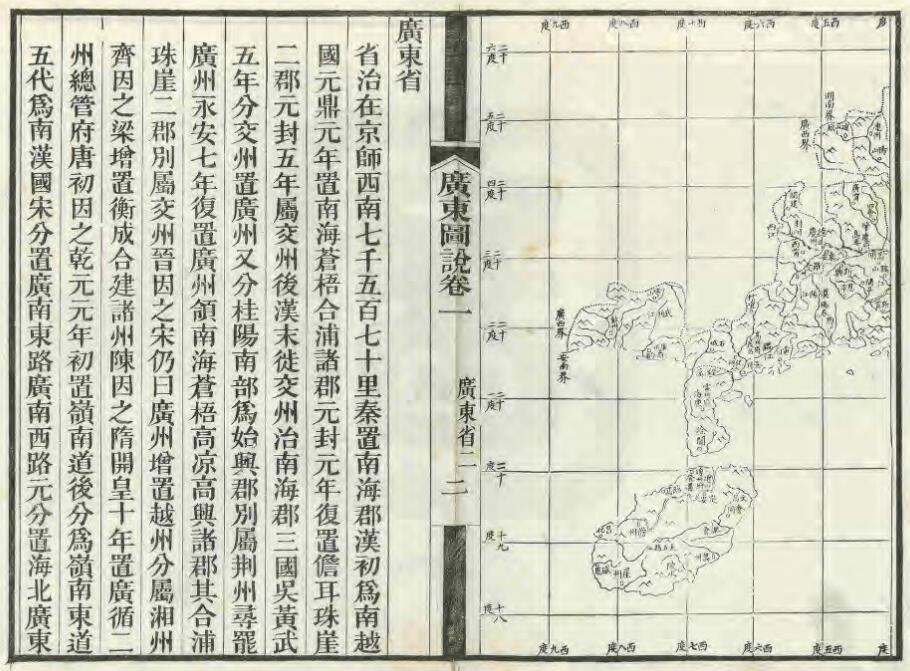 西五度
西六度
西七度
西八度
西九度
二十六度
二十五度
二十四度
二十三度
二十二度
二十一度
二十度
十九度
十八度
湖南界
廣西界
西江
廣西界
安南界
石城
徐聞
崖州
西五度
西六度
西七度
西八度
西九度
廣東圖說卷一
廣東省二
二
廣東省
省治在京師西南七千五百七十里秦置南海郡漢初爲南越
國元鼎元年置南海蒼梧合浦諸郡元封元年復置儋耳珠崖
二郡元封五年屬交州後漢末徙交州治南海郡三國吳黃武
五年分交州置廣州又分桂陽南部爲始興郡別屬荆州尋罷
廣州永安七年復置廣州領南海蒼梧高凉高興諸郡其合浦
珠崖二郡別屬交州晉因之宋仍曰廣州增置越州分屬湘州
齊因之梁增置衡成合建諸州陳因之隋開皇十年置廣循二
州總管府唐初因之乾元元年初置嶺南道後分爲嶺南東道
五代爲南漢國宋分置廣南東路廣南西路元分置海北廣東